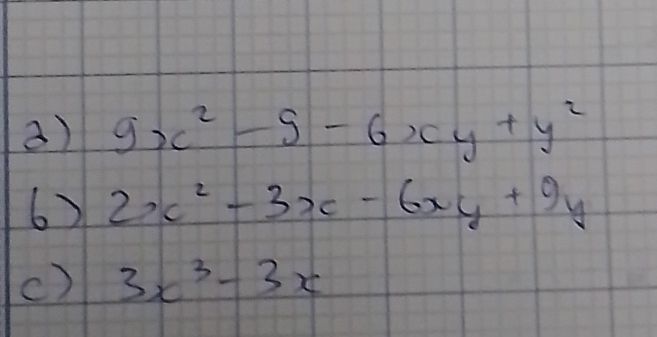 a) 9x² - 9 - 6xy + y²
b) 2x² - 3x - 6xy + 9y
c) 3x³ - 3x